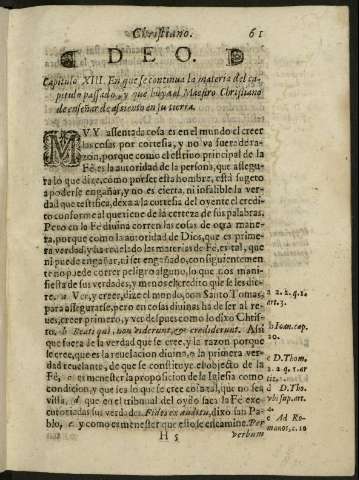 Christiano. 61
DEO.
Capitulo XIII. En que se continua la materia del ca-
pitulo passado, y que huya el Maestro Christiano
de enseñar de assiento en su tierra.
MVY assentada cosa es en el mundo el creer
las cosas por cortesia, y no va fuera de ra-
zon, porque como el estrivo principal de la
Fè es la autoridad de la persona, que assegu-
ra lo que dize, como por ser esta hombre, està sugeto
a poderse engañar, y no es cierta, ni infalible la ver-
dad que testifica, dexa a la cortesia del oyente el credi-
to conforme al que tiene de la certeza de sus palabras.
Pero en lo Fè divina corren las cosas de otra mane-
ra, porque como la autoridad de Dios, que es prime-
ra verdad, y ha revelado las materias de Fè, es tal, que
ni puede engañar, ni ser engañado, con siguientemen
te no puede correr peligro alguno, lo que nos mani-
fiesta de sus verdades, y menos el credito que se les die-
re. a Ver, y creer, dize el mundo, con Santo Tomas,
para assegurarse, pero en cosas divinas ha de ser al re-
ves, creer primero, y ver despues como lo dixo Chris-
to. b Beati qui, non viderunt, & crediderunt. Assi
que fuera de la verdad que se cree, y la razon porque
se cree, que es la revelacion divina, o la primera ver-
dad revelante, de que se constituye el objecto de la
Fè, c es menester la proposicion de la Iglesia como
condicion, y que sea lo que se cree
d que en el tribunal del oydo saca la Fè exe-
cutoriadas sus verdades. Fides ex auditu, dixo san Pa-
blo, e y como es menester que esso se encamine. Per
H 5 verbum
a 2. 2. q. 1.
art. 3.
b Ioan. cap.
20.
c D. Thom.
2. 2. q. 1. ar
d D. Tho.
vbi sup. art.
4.
e Ad Ro-
manos, c. 10